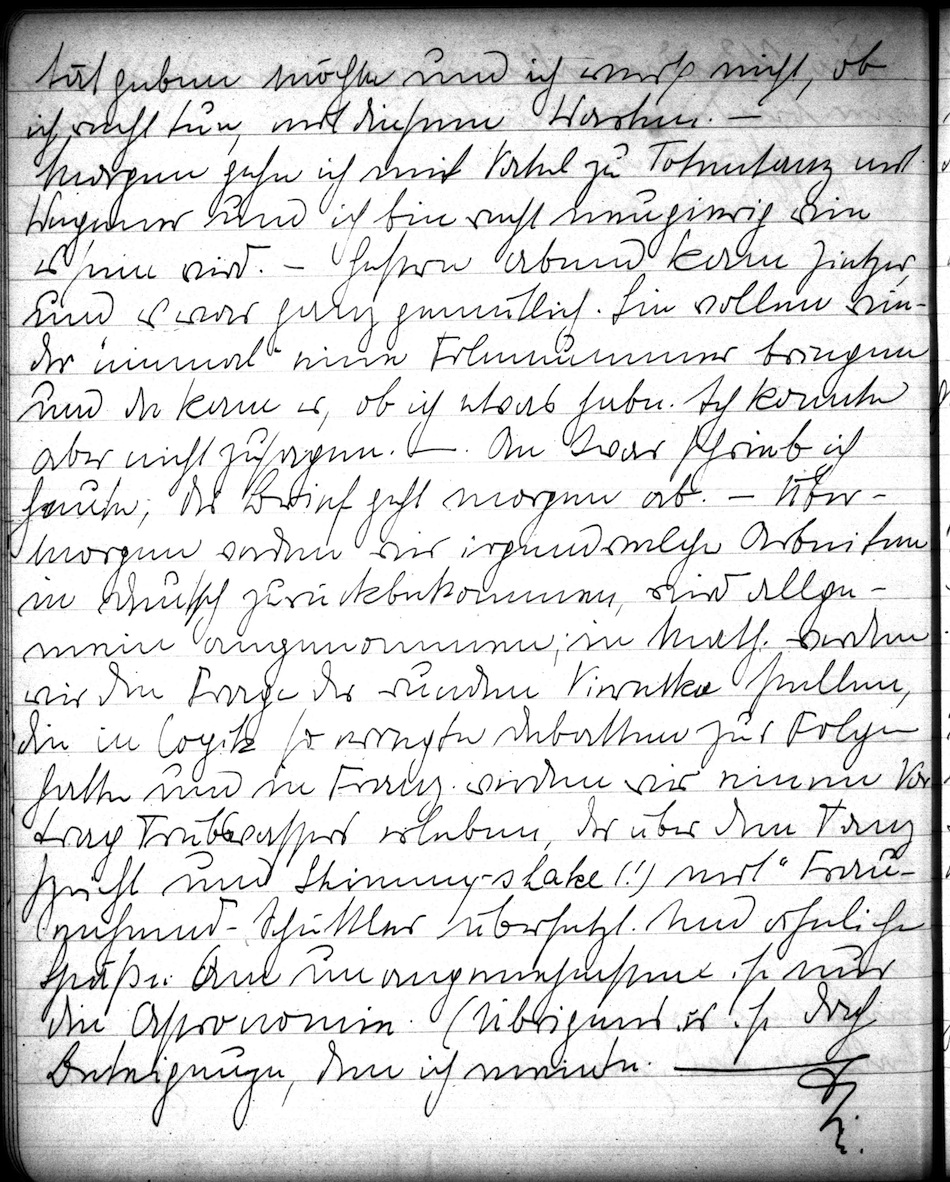 tut geben möchte und ich weiß nicht, ob
ich recht tue, mit diesem Warten. —
Morgen gehe ich mit Vatel zu Totentanz und
Wegener und ich bin recht neugierig wie
es sein wird. — Gestern abend kam
und es war ganz gemütlich. Sie wollen wie-
der "einmal" eine Filmnummer bringen
und da kam er, ob ich etwas habe. Ich konnte
aber nicht zusagen. —. An Iwar schrieb ich
heute, der Brief geht morgen ab. — Über-
morgen werden wir irgendwelche Arbeiten
in deutsch zurückbekommen, wird allge-
mein angenommen; in Math. werden
wir die Frage der runden Vierecke stellen,
die in Logik so erregte Debatten zur Folge
hatte und in Franz. werden wir einen Vor
trag erleben, der über den Tanz
spricht und Shimmy-shake (!) mit "
Schüttler übersetzt. Und ähnliche
Späße. Am unangenehmsten ist nur
die Astronomie. (Übrigens es ist doch
Beteigeuze, den ich meinte. —